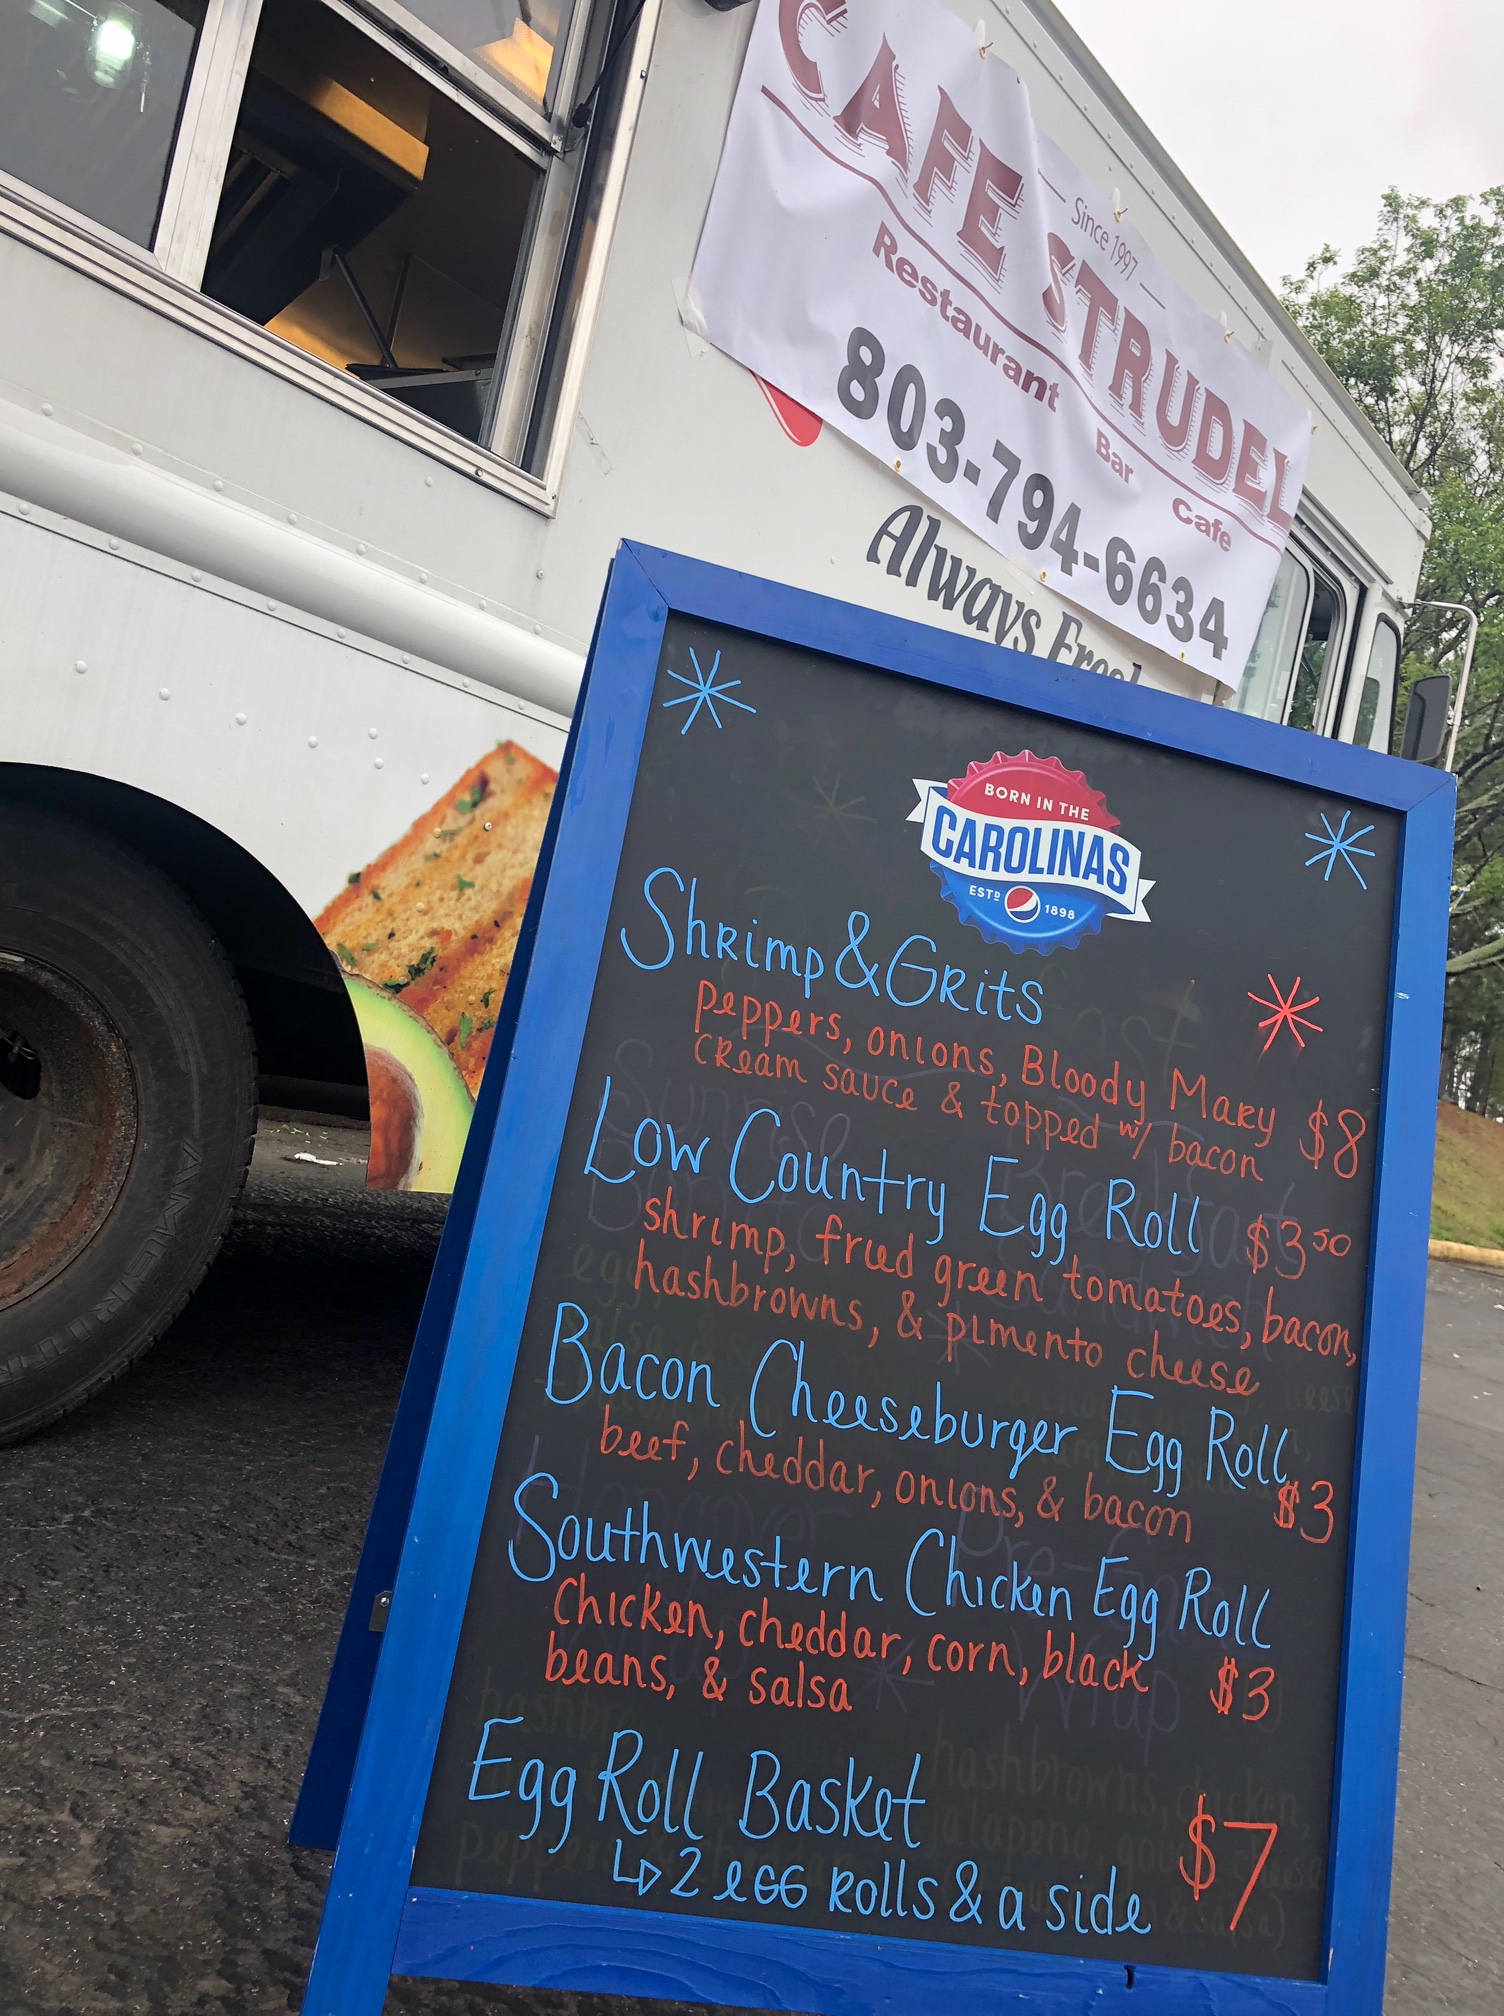 CAFE STRUDEL
Since 1997
Restaurant Bar Cafe
803-794-6634
Always
BORN IN THE
CAROLINAS
ESTD 1898
Shrimp & Grits
peppers, onions, Bloody Mary
cream sauce & topped w/ bacon $8
Low Country Egg Roll $3.50
shrimp, fried green tomatoes, bacon,
hashbrowns, & pimento cheese
Bacon Cheeseburger Egg Roll
beef, cheddar, onions, & bacon $3
Southwestern Chicken Egg Roll
chicken, cheddar, corn, black $3
beans, & salsa
Egg Roll Basket $7
↳ 2 egg rolls & a side